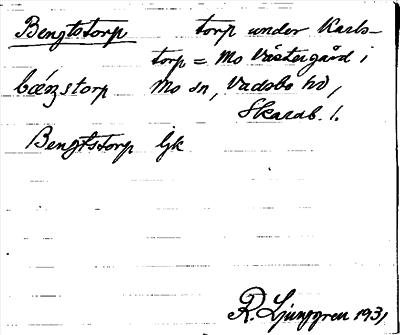 Bengtstorp torp under Karls-
torp = Mo Västergård i
bæ̂ŋstorp Mo sn, Vadsbo hd,
Skarab. l.
Bengtstorp Gk
R. Ljunggren 1931